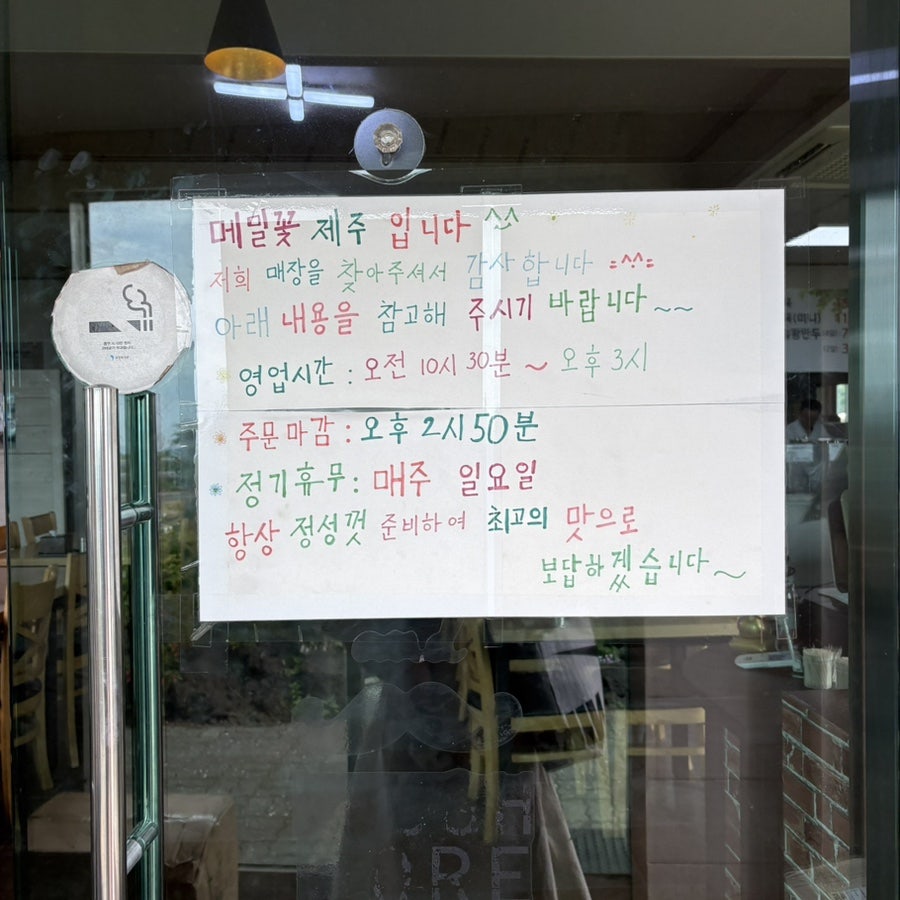 메밀꽃 제주 입니다 ^^
저희 매장을 찾아주셔서 감사 합니다 =^^=
아래 내용을 참고해 주시기 바랍니다~~
영업시간 : 오전 10시 30분 ~ 오후 3시
주문마감 : 오후 2시 50분
정기휴무 : 매주 일요일
항상 정성껏 준비하여 최고의 맛으로
보답하겠습니다~